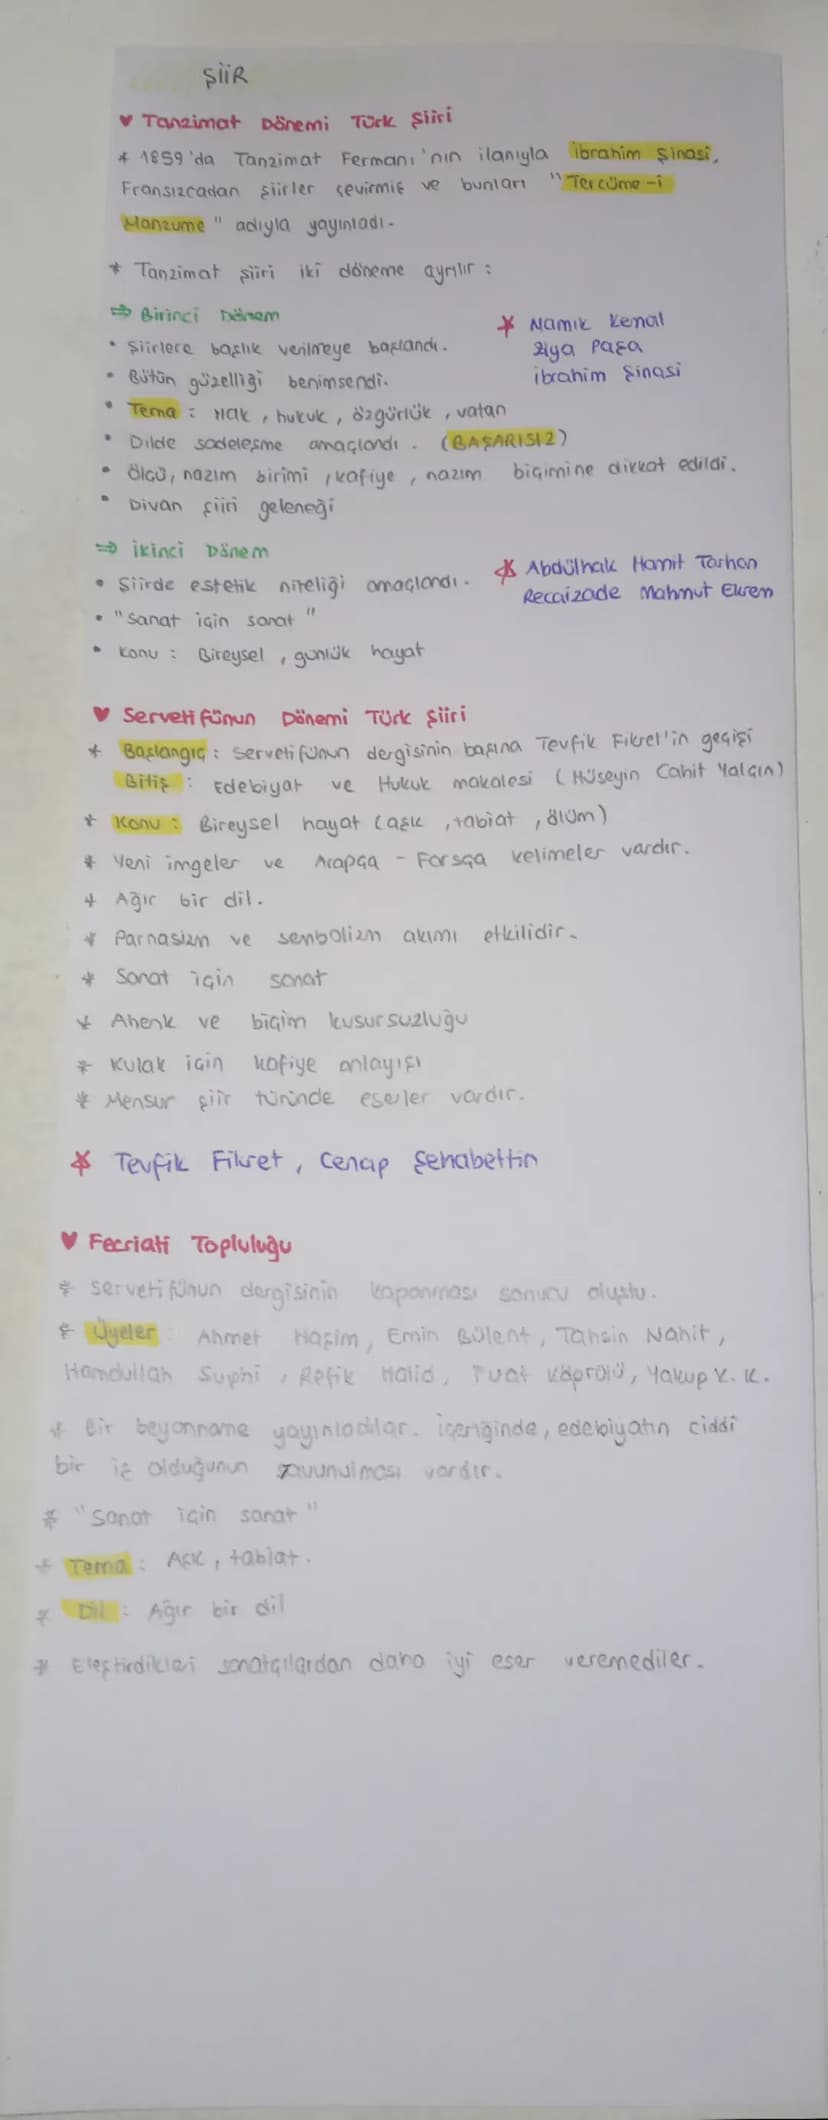 ŞİİR
♥ Tanzimat Dönemi Türk Şiiri
* 1859'da Tanzimat Fermanı'nın ilanıyla İbrahim Şinasi,
Fransızcadan şiirler çevirmiş ve bunları "Tercüme-i
Manzume" adıyla yayınladı.
* Tanzimat şiiri iki döneme ayrılır :
⇒ Birinci Dönem
* Namık Kemal
• Şiirlere başlık verilmeye başlandı.
Ziya Paşa
• Bütün güzelliği benimsendi.
İbrahim Şinasi
• Tema : Hak, hukuk, özgürlük, vatan
• Dilde sadeleşme amaçlandı. (BAŞARISIZ)
• Ölçü, nazım birimi, kafiye, nazım biçimine dikkat edildi.
• Divan şiiri geleneği
⇒ İkinci Dönem
* Abdülhak Hamit Tarhan
• Şiirde estetik niteliği amaçlandı.
Recaizade Mahmut Ekrem
• "Sanat için sanat"
• Konu : Bireysel, günlük hayat
♥ Servetifünun Dönemi Türk Şiiri
* Başlangıç : Servetifünun dergisinin başına Tevfik Fikret'in geçişi
Bitiş : Edebiyat ve Hukuk makalesi (Hüseyin Cahit Yalçın)
* Konu : Bireysel hayat (aşk, tabiat, ölüm)
* Yeni imgeler ve Arapça - Farsça kelimeler vardır.
* Ağır bir dil.
* Parnasizm ve senbolizm akımı etkilidir.
* Sanat için sanat
* Ahenk ve biçim kusursuzluğu
* Kulak için kafiye anlayışı
* Mensur şiir türünde eserler vardır.
* Tevfik Fikret, Cenap Şehabettin
♥ Fecriati Topluluğu
* Servetifünun dergisinin kapanması sonucu oluştu.
* Üyeler : Ahmet Haşim, Emin Bülent, Tahsin Nahit,
Hamdullah Suphi, Refik Halid, Fuat Köprülü, Yakup K. K.
* Bir beyanname yayınladılar. İçeriğinde, edebiyatın ciddi
bir iş olduğunun savunulması vardır.
* "Sanat için sanat"
* Tema : Aşk, tabiat.
* Dil : Ağır bir dil
* Eleştirdikleri sanatçılardan daha iyi eser veremediler.